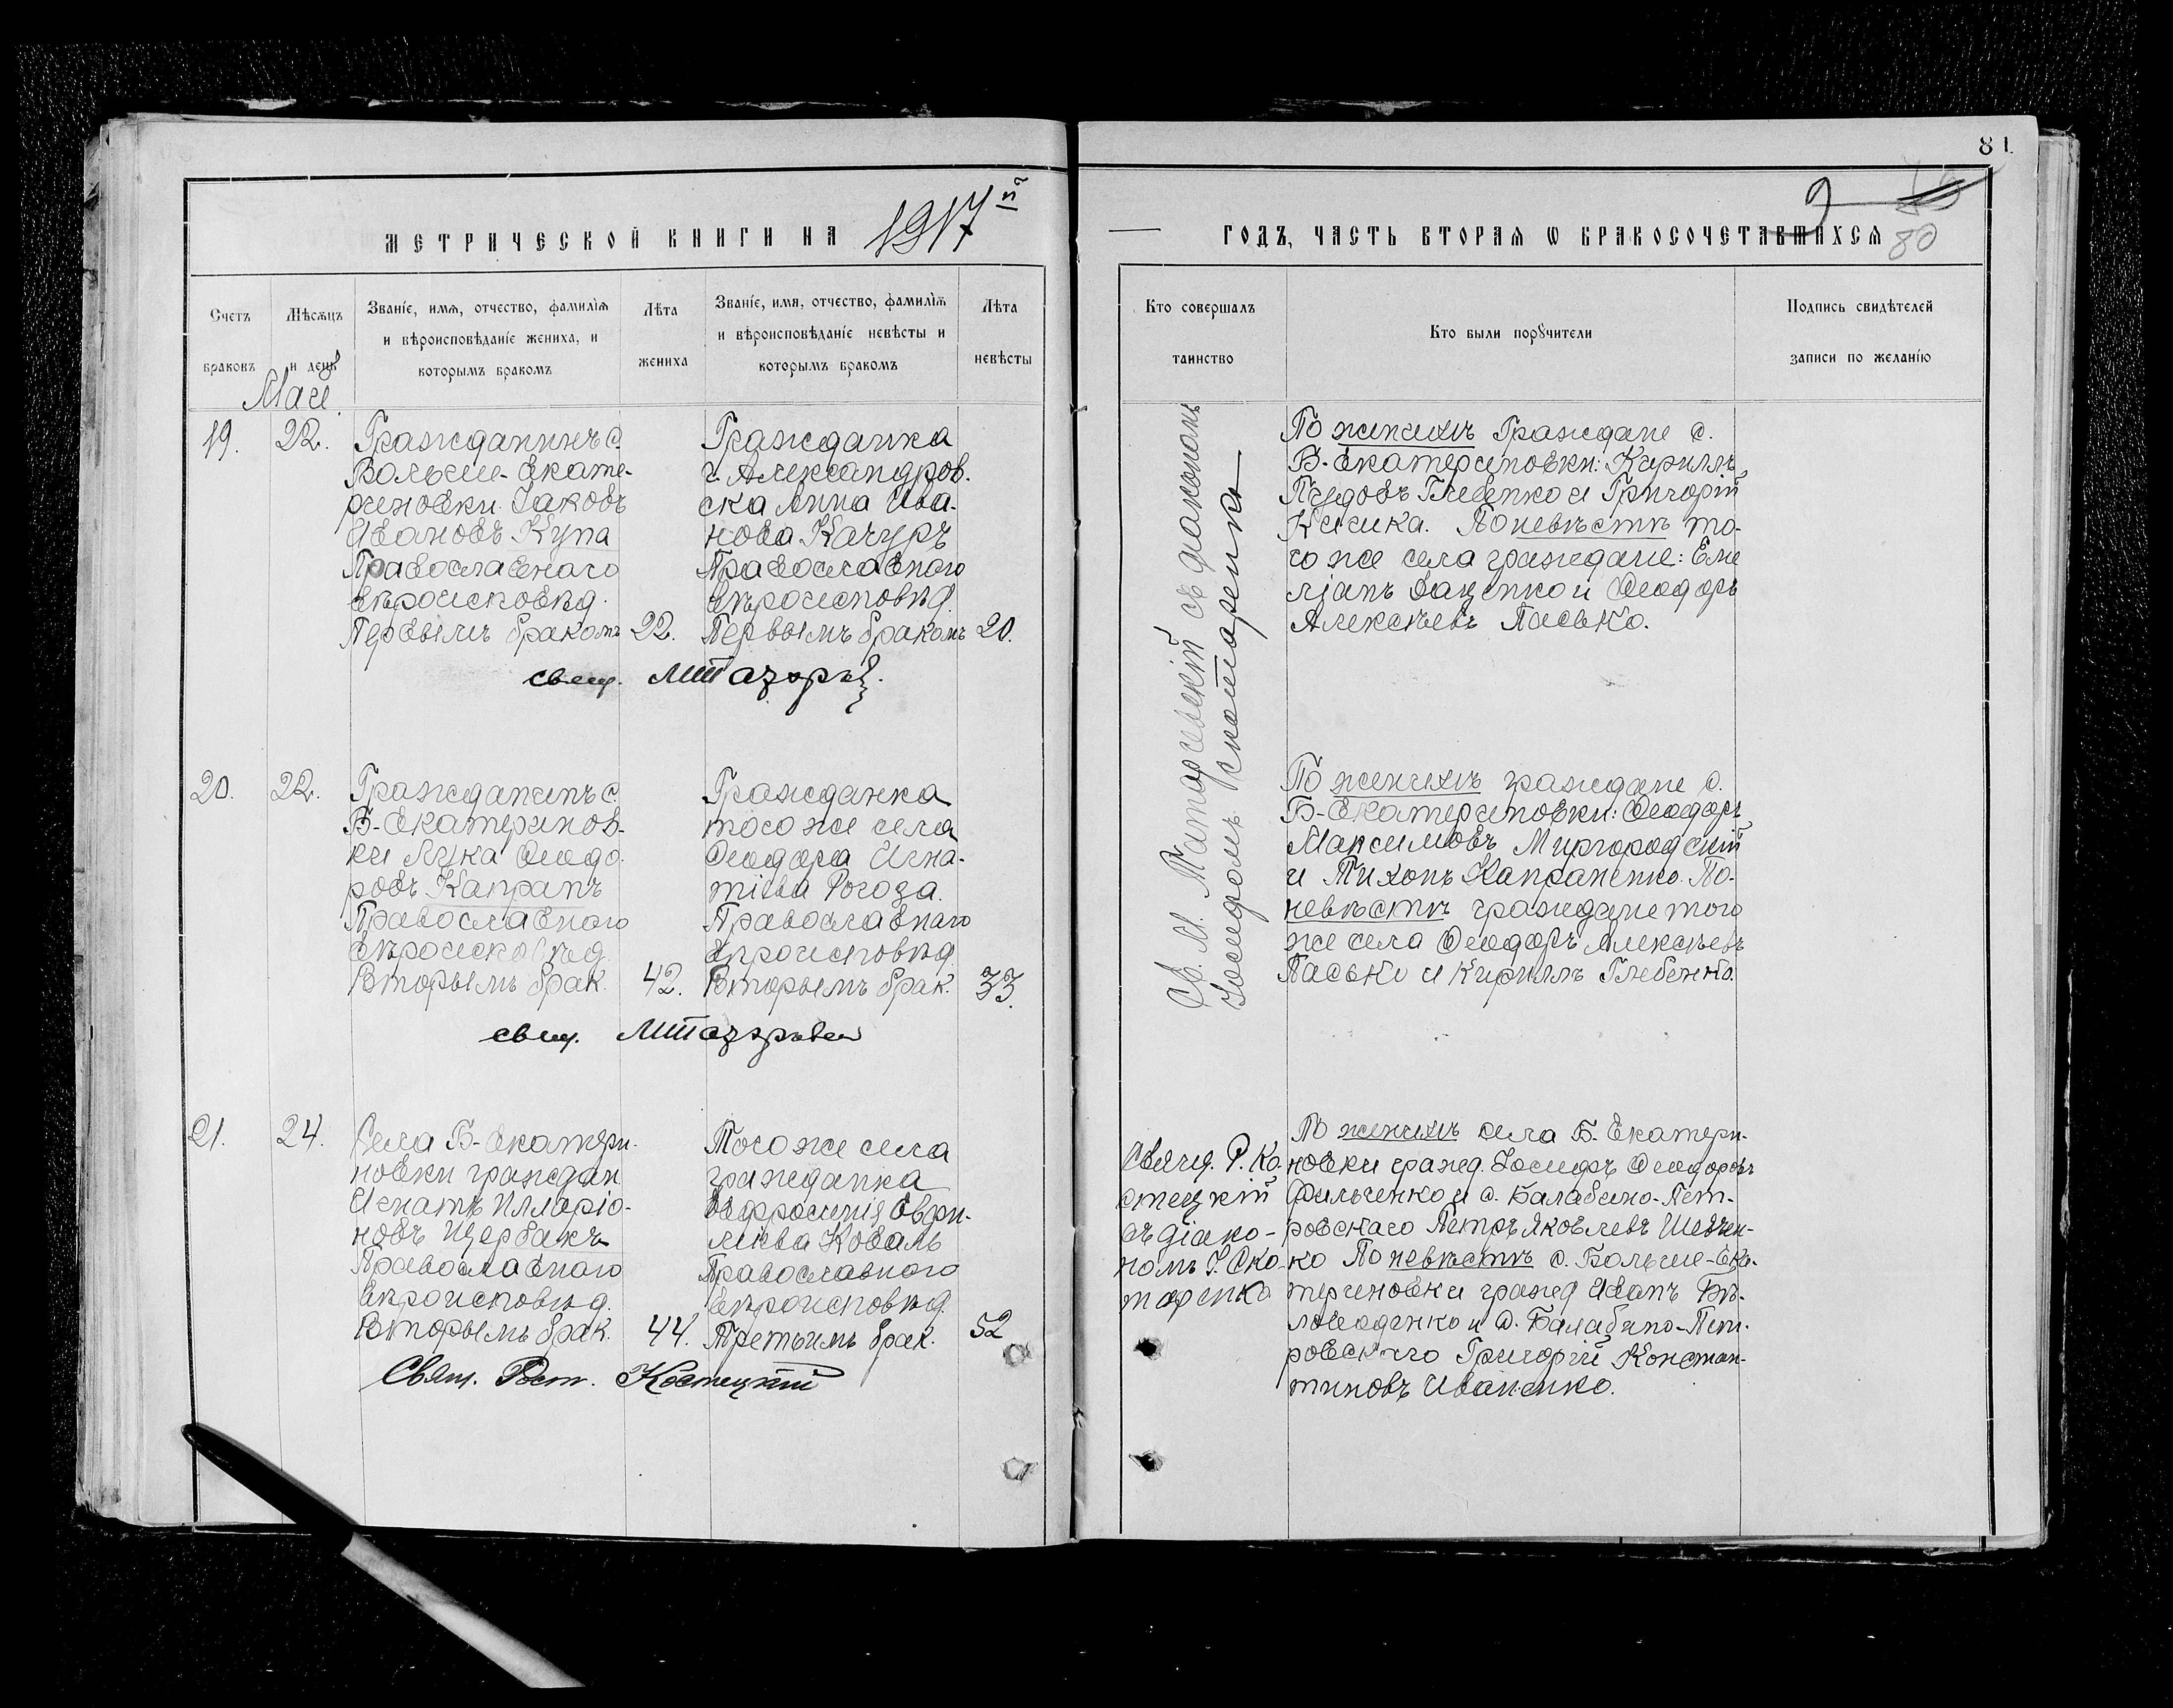 81
9
80
МЕТРИЧЕСКОЙ КНИГИ НА 1917й
ГОДЪ, ЧАСТЬ ВТОРАЯ Ѡ БРАКОСОЧЕТАВШИХСЯ
Счетъ браковъ
Мѣсяцъ и день
Званіе, имя, отчество, фамилія и вѣроисповѣданіе жениха, и которымъ бракомъ
Лѣта жениха
Званіе, имя, отчество, фамилія и вѣроисповѣданіе невѣсты и которымъ бракомъ
Лѣта невѣсты
Кто совершалъ таинство
Кто были поручители
Подпись свидѣтелей записи по желанію
Маи
19.
22.
Гражданинъ с.
Больше-Екате-
риновки Іаковъ
Ивановъ Купа
Православнаго
вѣроисповѣд.
Первымъ бракомъ
22.
Гражданка
г. Александров-
ска Анна Ива-
нова Качуръ
Православнаго
вѣроисповѣд.
Первымъ бракомъ
20.
свящ.
По женихѣ Граждане с.
Б-Екатериновки: Кириллъ
Пудовъ Глебенко и Григорій
Кишка. По невѣстѣ то-
го же села граждане: Еме
ліанъ Даценко и Ѳеодоръ
Алексѣевъ Пасько.
съ діакономъ
Іосифомъ Скотаренко
20.
22.
Гражданинъ с.
Б-Екатеринов-
ки Лука Ѳеодо-
ровъ Капранъ
Православнаго
вѣроисповѣд.
Вторымъ брак.
42.
Гражданка
того же села
Ѳеодора Игна-
тіева Рогоза.
Православнаго
вѣроисповѣд.
Вторымъ брак.
33.
свящ.
По женихѣ граждане с.
Б-Екатериновки: Ѳеодоръ
Максимовъ Миргородскій
и Тихонъ Капраненко. По-
невѣстѣ граждане того
же села Ѳеодоръ Алексѣевъ
Пасько и Кириллъ Глебенко.
21.
24.
Села Б-Екатери-
новки граждан.
Игнатъ Илларіо-
новъ Щербакъ
Православнаго
вѣроисповѣд.
Вторымъ брак.
44.
Того же села
гражданка
Евфросинія
Коваль
Православнаго
вѣроисповѣд.
Третьимъ брак.
52
Свящ. Рост. Костецкій
Свящ. Р. Ко-
стецкій
съ діако-
номъ І. Ско-
таренко
По женихѣ села Б. Екатери-
новки гражд. Іосифъ Ѳеодоровъ
Фильченко и с. Балабино-Пет-
ровскаго Петръ Яковлевъ Шевчен-
ко По невѣстѣ с. Больше-Ека-
териновки гражд Иванъ Бѣ-
ловоденко и с. Балабино-Пет-
ровскаго Григорій Констан-
тиновъ Иваненко.